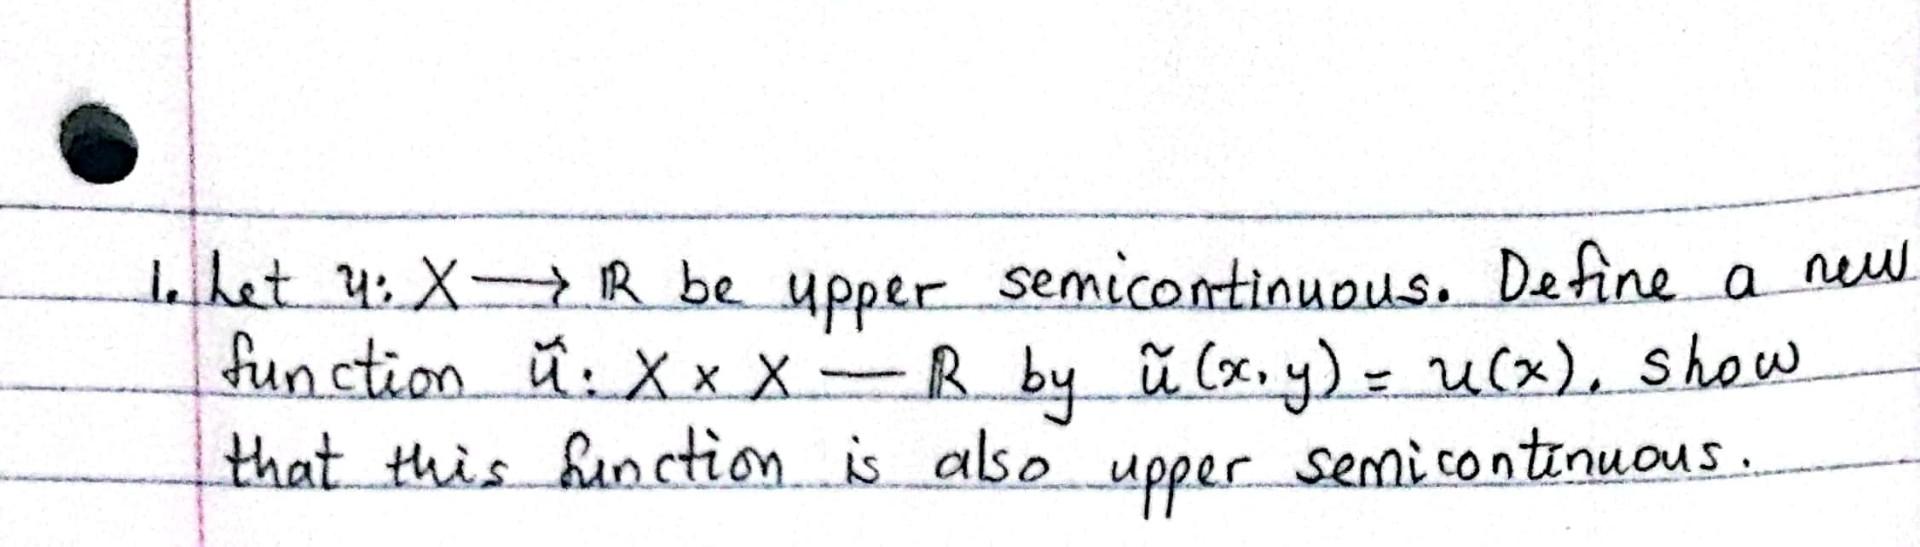 1. Let u: X → ℝ be upper semicontinuous. Define a new
function ũ: X × X — ℝ by ũ(x, y) = u(x). show
that this function is also upper semicontinuous.